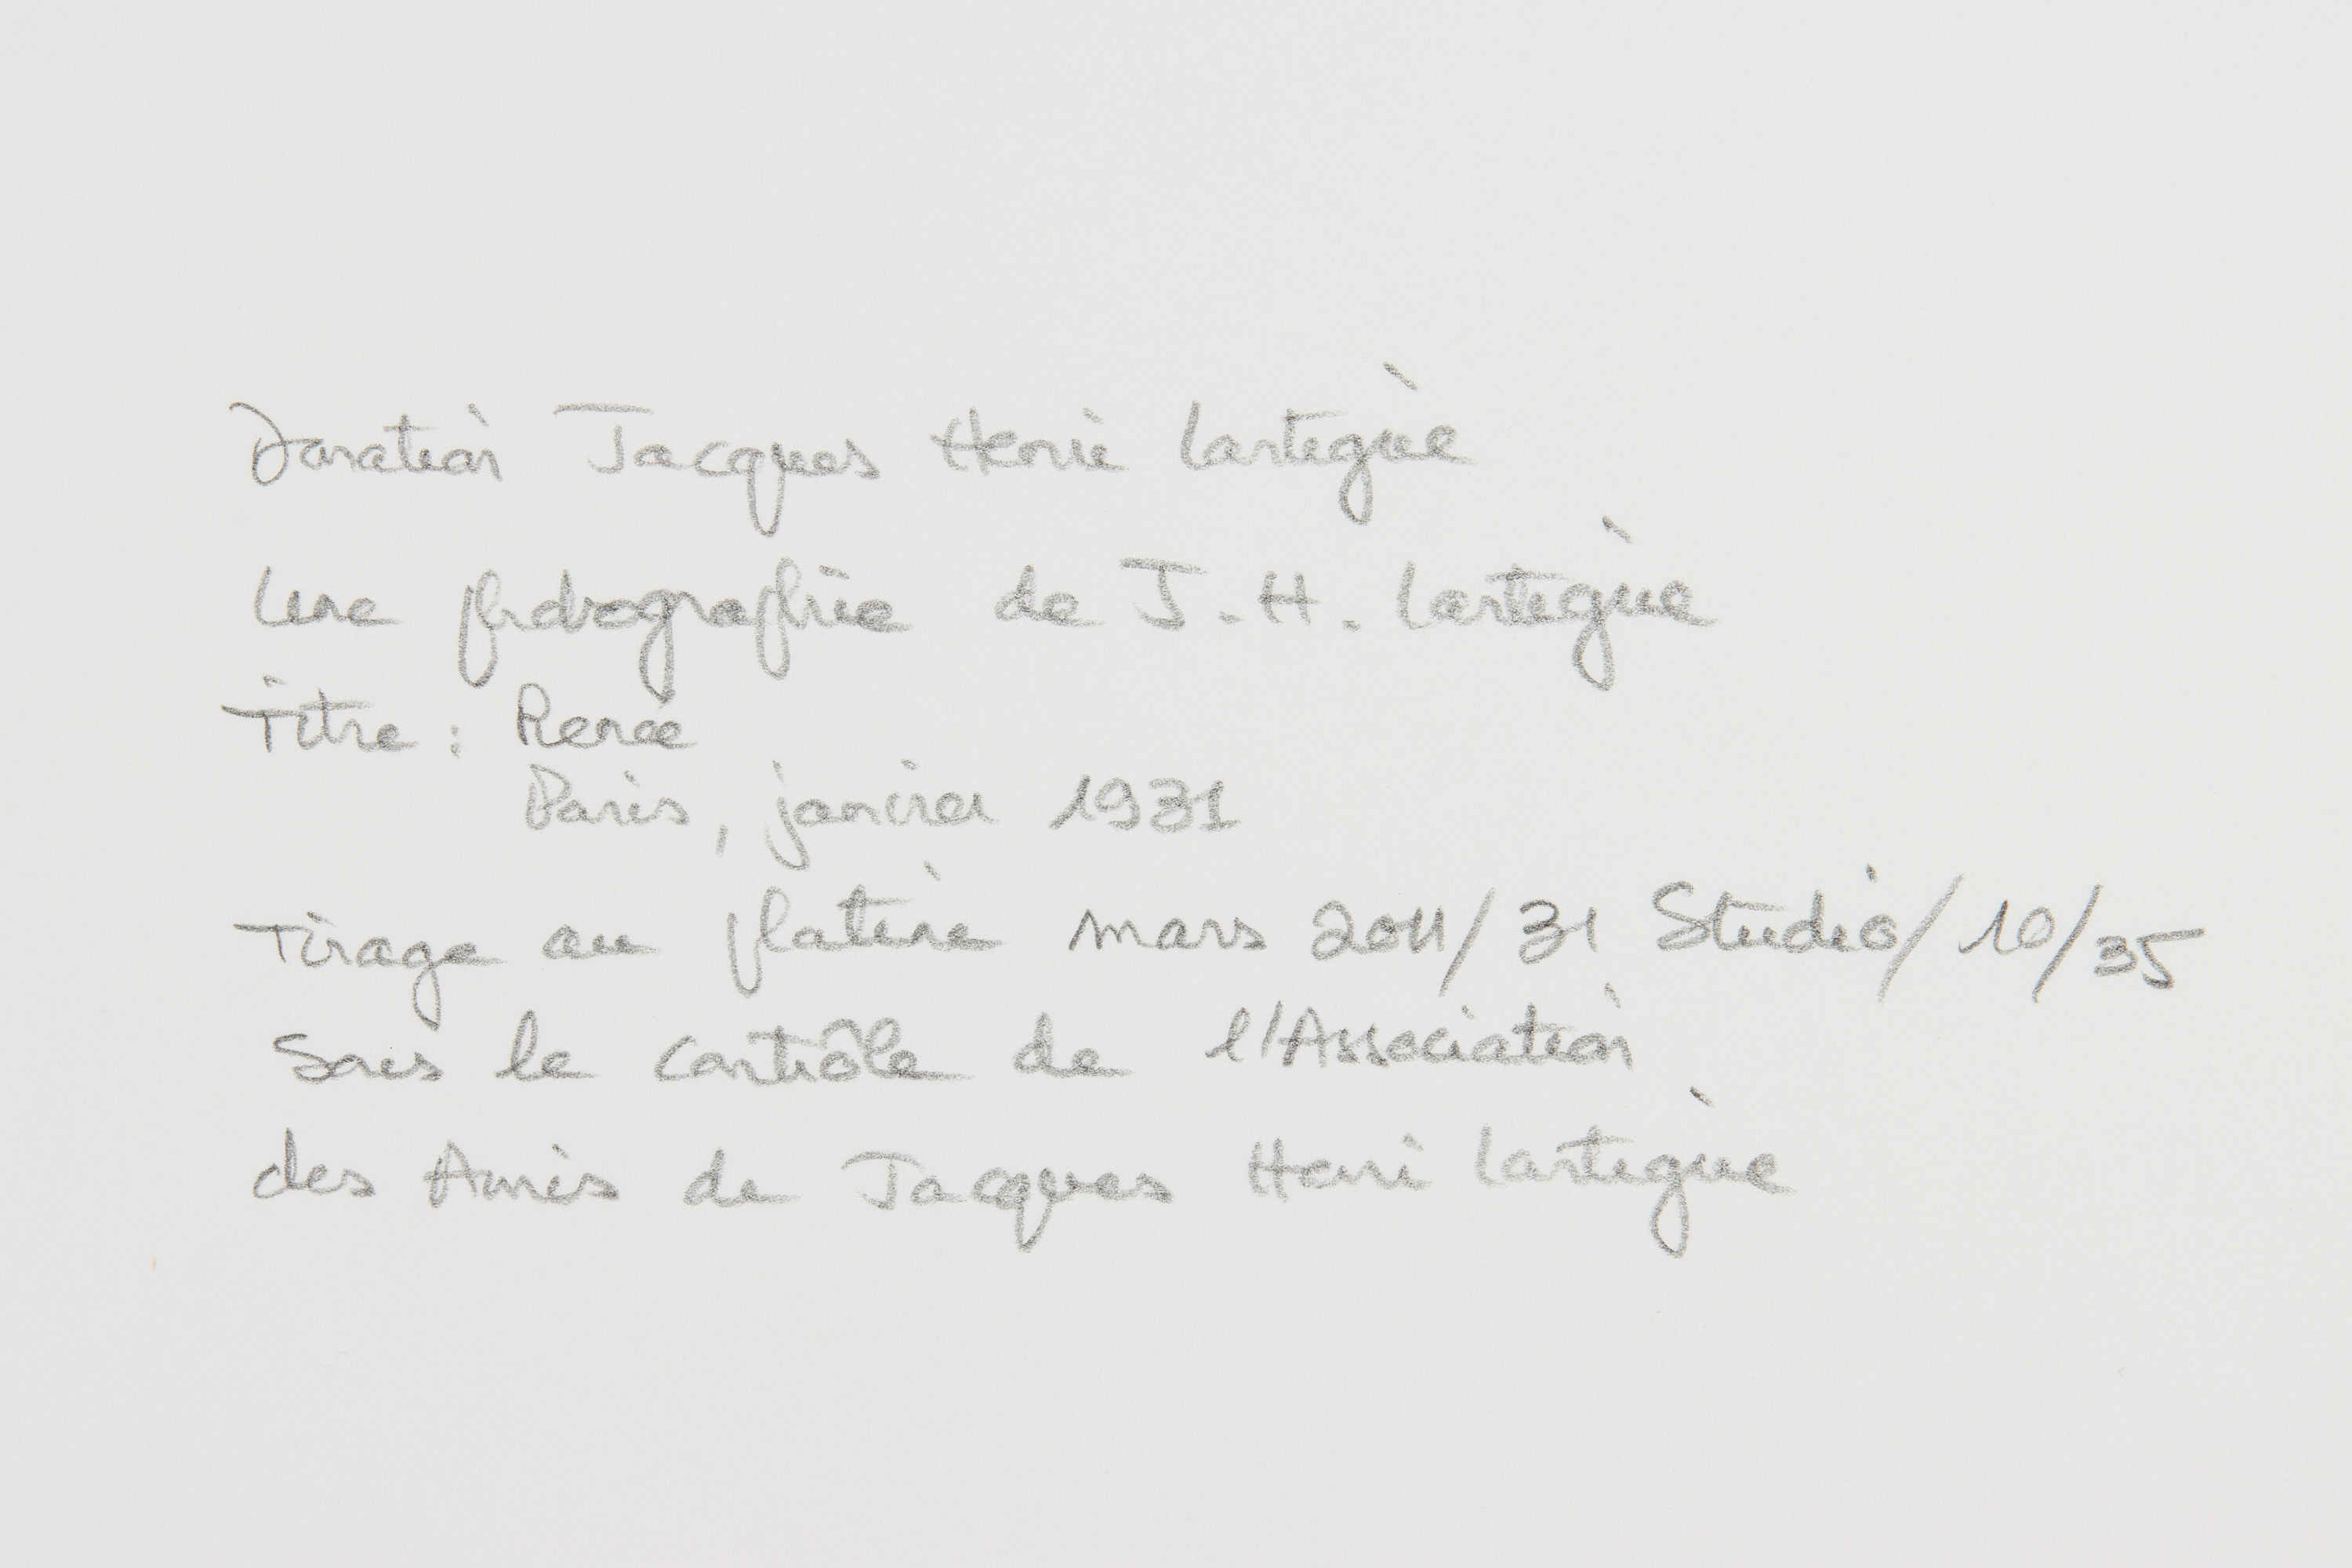 Donation Jacques Henri Lartigue
Une photographie de J.H. Lartigue
Titre : Renée
Paris, janvier 1931
Tirage au platine mars 2011/31 Studio/10/35
Sous le contrôle de l'Association
des Amis de Jacques Henri Lartigue